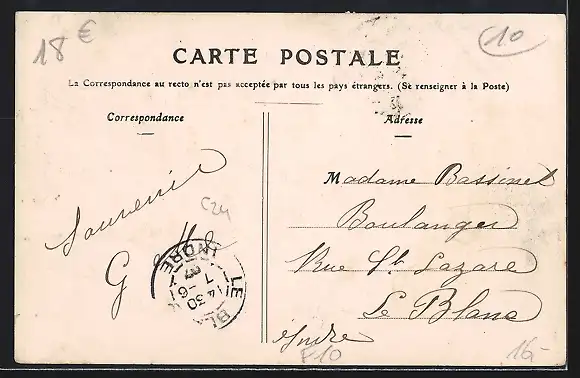 18 €
10
CARTE POSTALE
La Correspondance au recto n'est pas acceptée par tous les pays étrangers. (Se renseigner à la Poste)
Correspondance
Adresse
Souvenir
C24
G
LE BL
INDRE
14 30
7 - 6
Madame Bassinet
Boulanger
Rue St. Lazare
Le Blanc
Indre
F10
16-